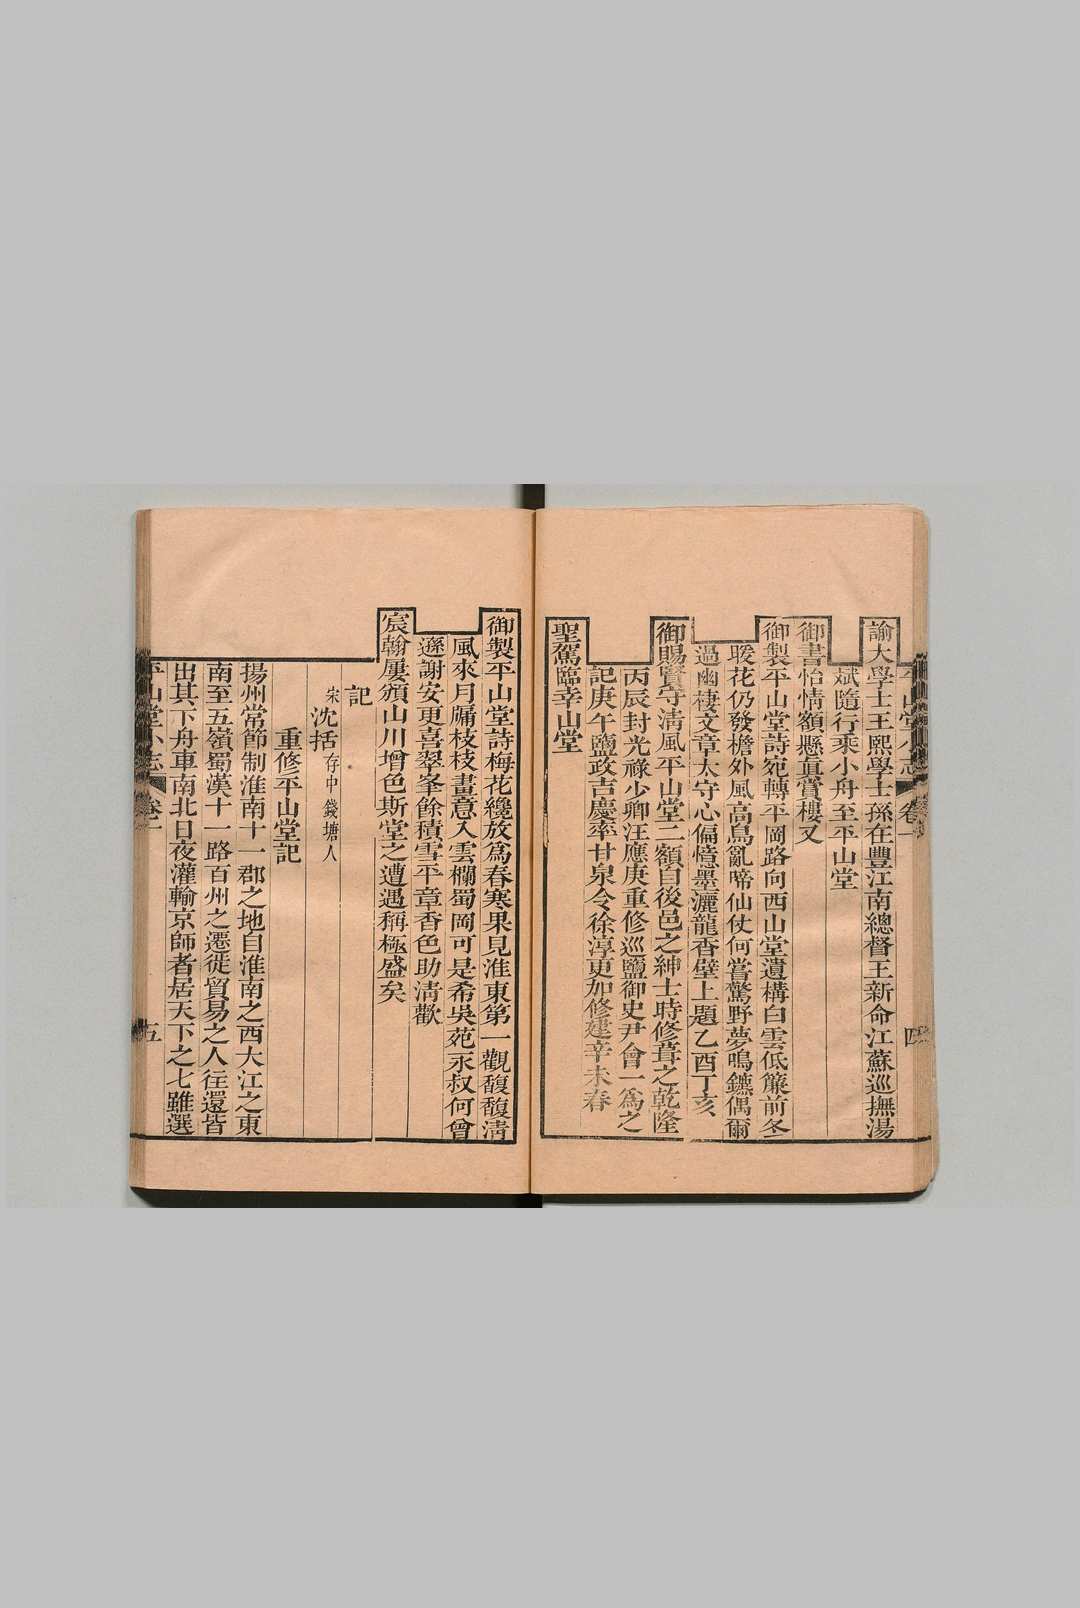 平山堂小志 卷一 四
諭大學士王熙學士孫在豐江南總督王新命江蘇巡撫湯
斌隨行乘小舟至平山堂
御書怡情額懸眞賞樓又
御製平山堂詩宛轉平岡路向西山堂遺構白雲低簾前冬
暖花仍發檐外風高鳥亂啼仙仗何嘗驚野夢鳴鑣偶爾
過幽棲文章太守心偏憶墨灑龍香壁上題乙酉丁亥
御賜賢守清風平山堂二額自後邑之紳士時修葺之乾隆
丙辰封光祿少卿汪應庚重修巡鹽御史尹會一爲之
記庚午鹽政吉慶率甘泉令徐淳更加修建辛未春
聖駕臨幸山堂
御製平山堂詩梅花纔放爲春寒果見淮東第一觀馥馥清
風來月牖枝枝畫意入雲欄蜀岡可是希吳苑永叔何曾
遜謝安更喜翠峯餘積雪平章香色助清歡
宸翰屢頒山川增色斯堂之遭遇稱極盛矣
記
宋沈括存中錢塘人
重修平山堂記
揚州常節制淮南十一郡之地自淮南之西大江之東
南至五嶺蜀漢十一路百州之遷徙貿易之人往還皆
出其下舟車南北日夜灌輸京師者居天下之七雖選
平山堂小志 卷一 五